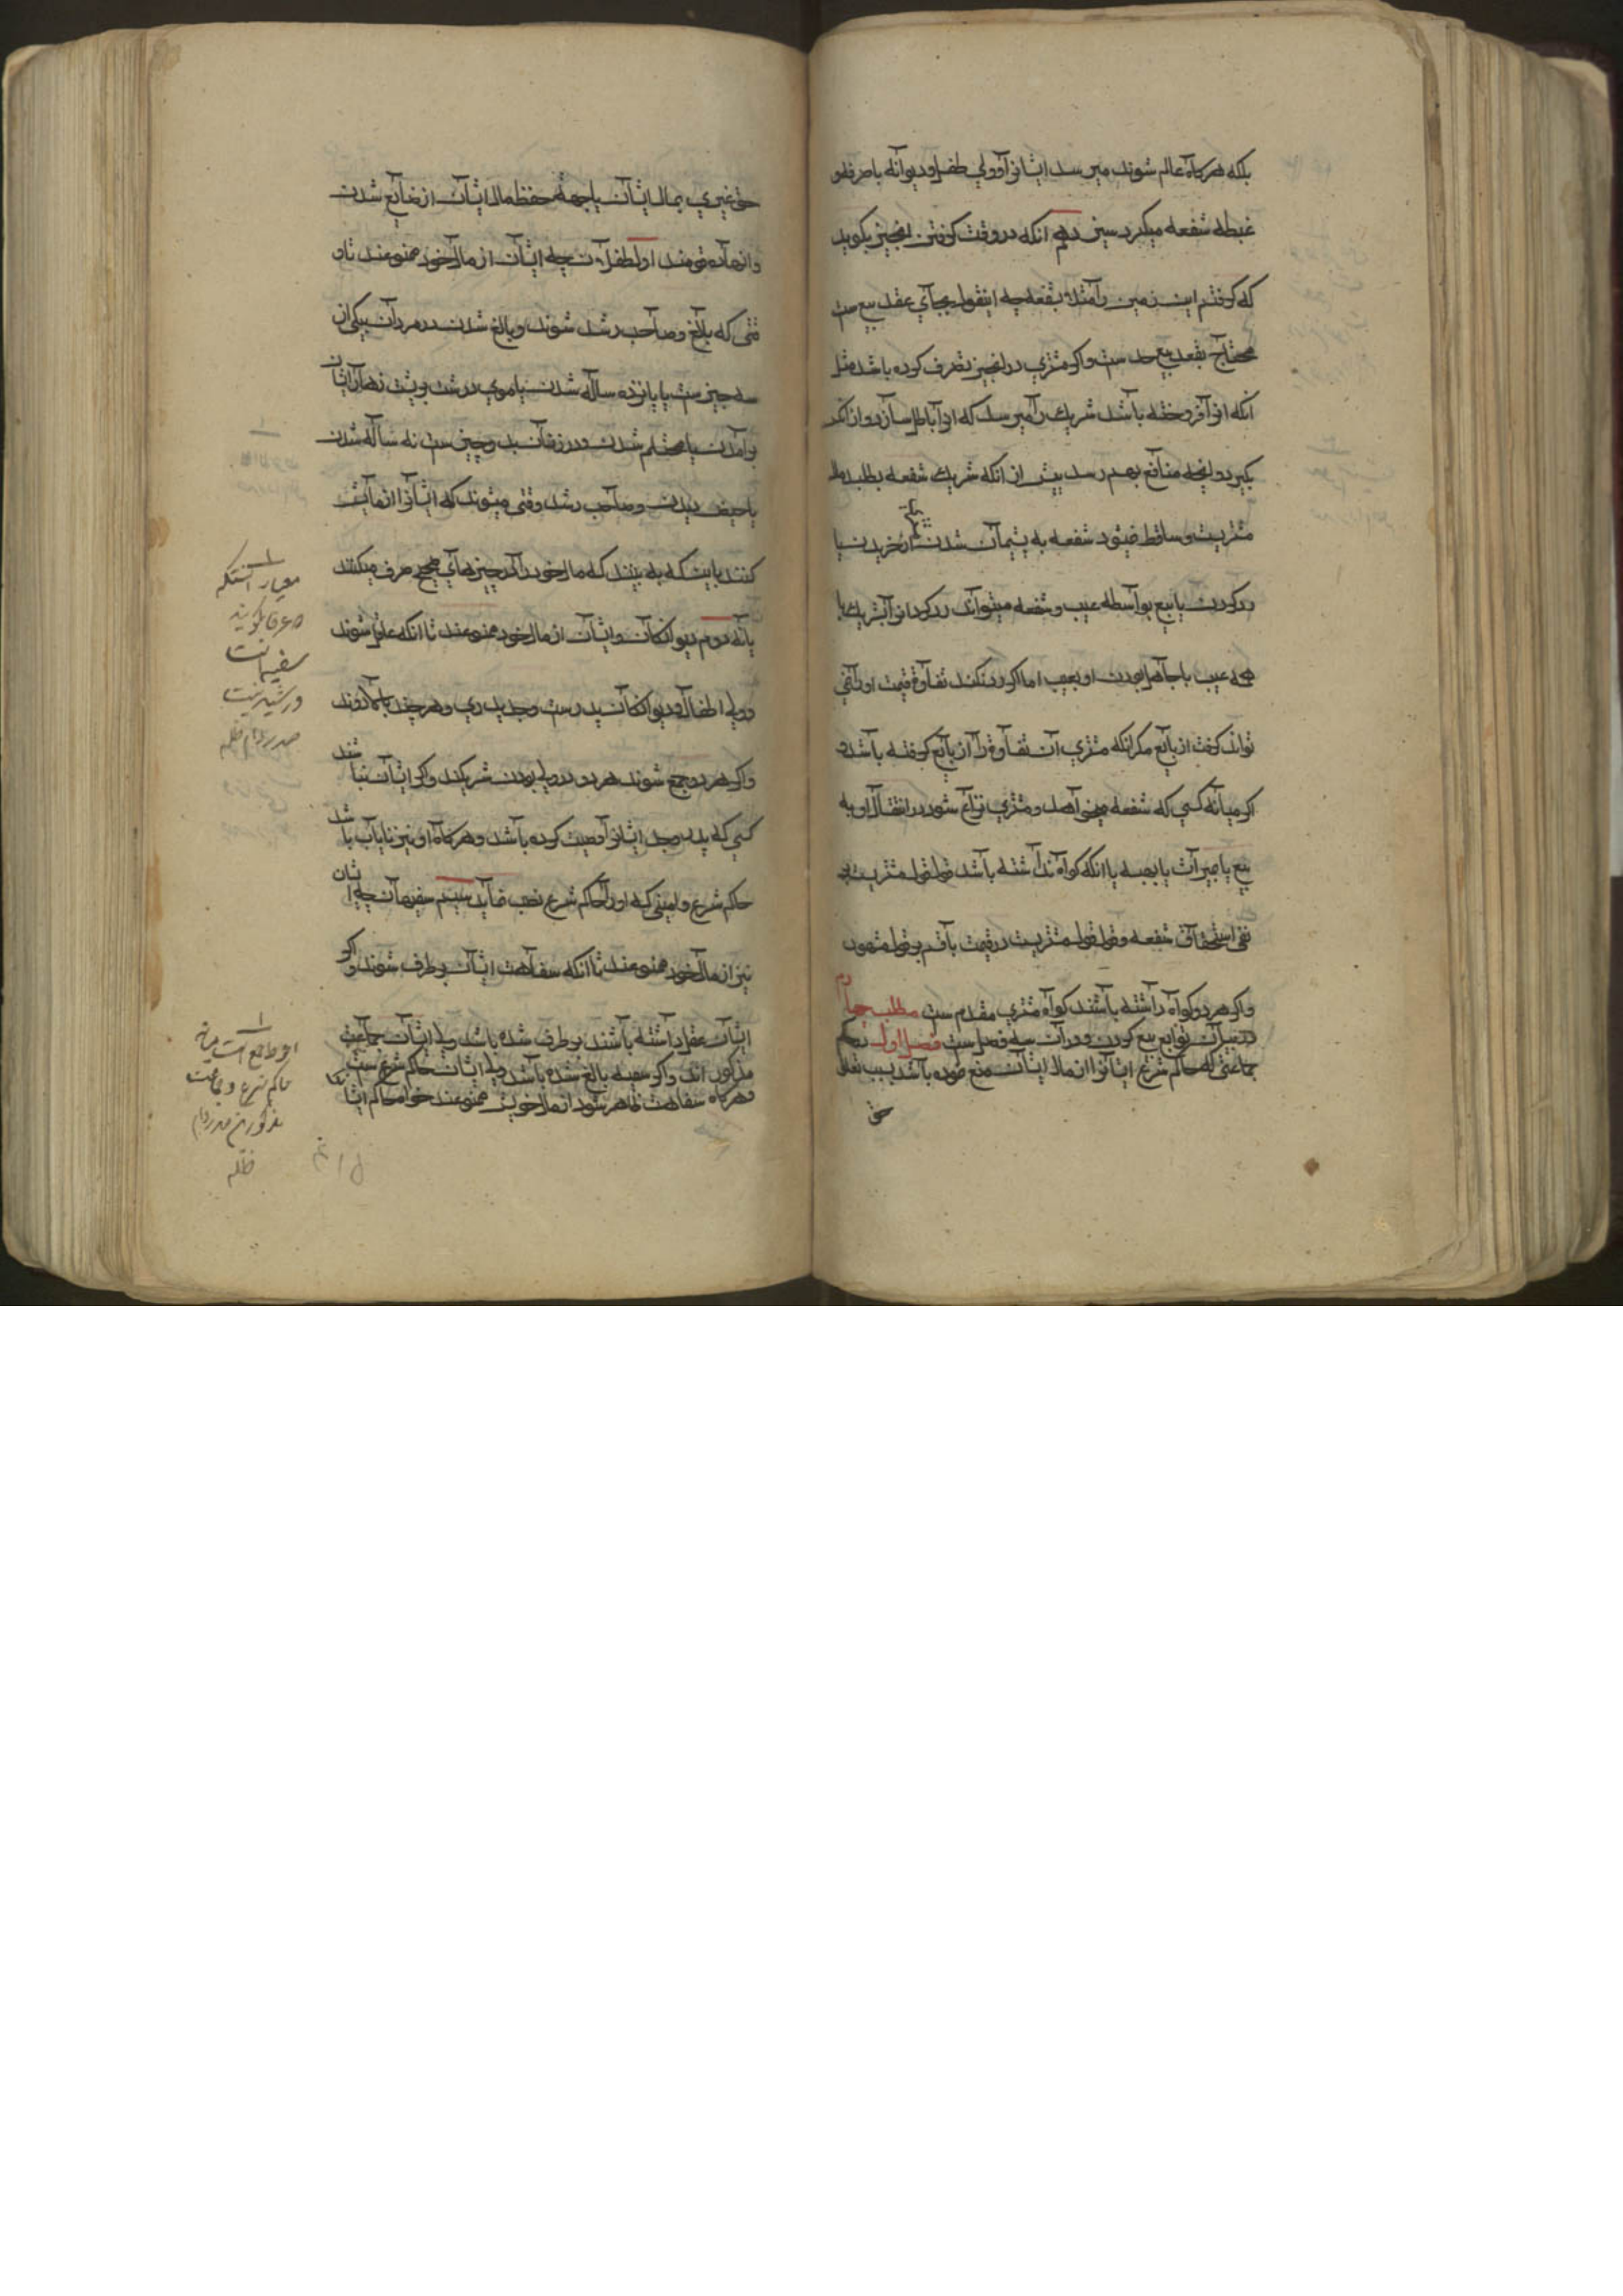 بلکه هرکاه عالم شوند میرسد ایشانرا و ولی طفل و دیوانه با صرفه و
غبطه شفعه میکیرد سیزدهم انکه در وقت کرفتن انچیز بکوید
که کرفتم این زمین را مثلا بشفعه چه اینقول بجای عقد بیع ست
محتاج بعقد بیع جدا ست و اکر مشتری در انچیز تصرف کرده باشد مثل
انکه انرا فروخته باشد شریک را میرسد که انرا باطل سازد و از انکه
بکیرد و انچه منافع بهم رسد پیش از انکه شریک شفعه بطلبد مال
مشتریست و ساقط میشود شفعه به پشیمان شدن از خریدن یا
رد کردن بایع بواسطه عیب و شفعه میتواند رد کردانرا شریک با
عیب با جاهل بودن او بعیب اما اکر رد نکند تفاوت قیمت او را نمی
تواند کرفت از بایع مکر انکه مشتری آن تفاوت را از بایع کرفته باشد و
اکر میانه کسی که شفعه میخواهد و مشتری نزاع شود در انتقال او به
بیع یا میراث یا بهبه یا انکه کواه نداشته باشد قول قول مشتریست در
نفی استحقاق شفعه و قول قول مشتریست در قیمت با قسم بر قول مشهور
و اکر هر دو کواه داشته باشند کواه مشتری مقدم ست مطلب چهارم
در بیان توابع بیع کردن و در آن سه فصل ست فصل اول در حکم
جماعتی که حاکم شرع ایشانرا از مال ایشان منع نموده باشد بسبب تعلق
حق
حق غیری بمال ایشان یا جهة حفظ مال ایشان از ضایع شدن
و انها نه قومند اول طفلان چه ایشان از مال خود ممنوعند تا و
قتی که بالغ و صاحب رشد شوند و بالغ شدن در مردان بیکی از
سه چیز ست یا پانزده ساله شدن یا موی درشت بر پشت زهار ایشان
برامدن یا محتلم شدن و در زنان بدو چیز ست نه ساله شدن
یا حیض دیدن و صاحب رشد وقتی میشوند که ایشانرا ازمایش
کنند باینکه به بینند که مال خود را در چیزهای صحیح صرف میکنند
یا نه دوم دیوانکان و ایشان از مال خود ممنوعند تا انکه عاقل شوند
و ولی اطفال و دیوانکان پدر ست و جد پدری و هرچند بالا روند
و اکر هر دو جمع شوند هر دو در ولی بودن شریکند و اکر ایشان نباشند
کسی که پدر و جد ایشانرا وصیت کرده باشد و هرکاه او نیز نایاب باشد
حاکم شرع و امینی که او را حاکم شرع نصب نماید سیم سفیهان چه ایشان
نیز از مال خود ممنوعند تا انکه سفاهت ایشان برطرف شود و اکر
ایشان عقل داشته باشند برطرف شده باشد ولی ایشان جماعت
مذکور اند و اکر سفیه بالغ شده باشد ولی ایشان حاکم شرع ست
و هرکاه سفاهت ظاهر شود از مال خویش ممنوعند خواه حاکم ایشا
معیار انستکه
در عرفا کویند
سفیه است
و رشید نیست
صدر دام ظله
احوط جمع است میانه
حاکم شرع و جماعت
مذکورین صدر دام
ظله